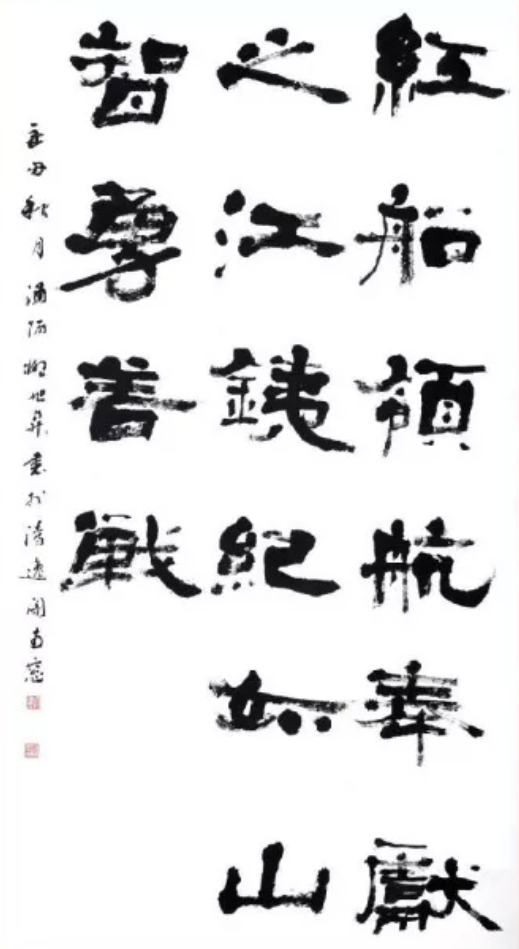 紅船領航奉獻
之江銕紀如山
智勇善戰
辛丑秋月柳世書於清遠閣南窗